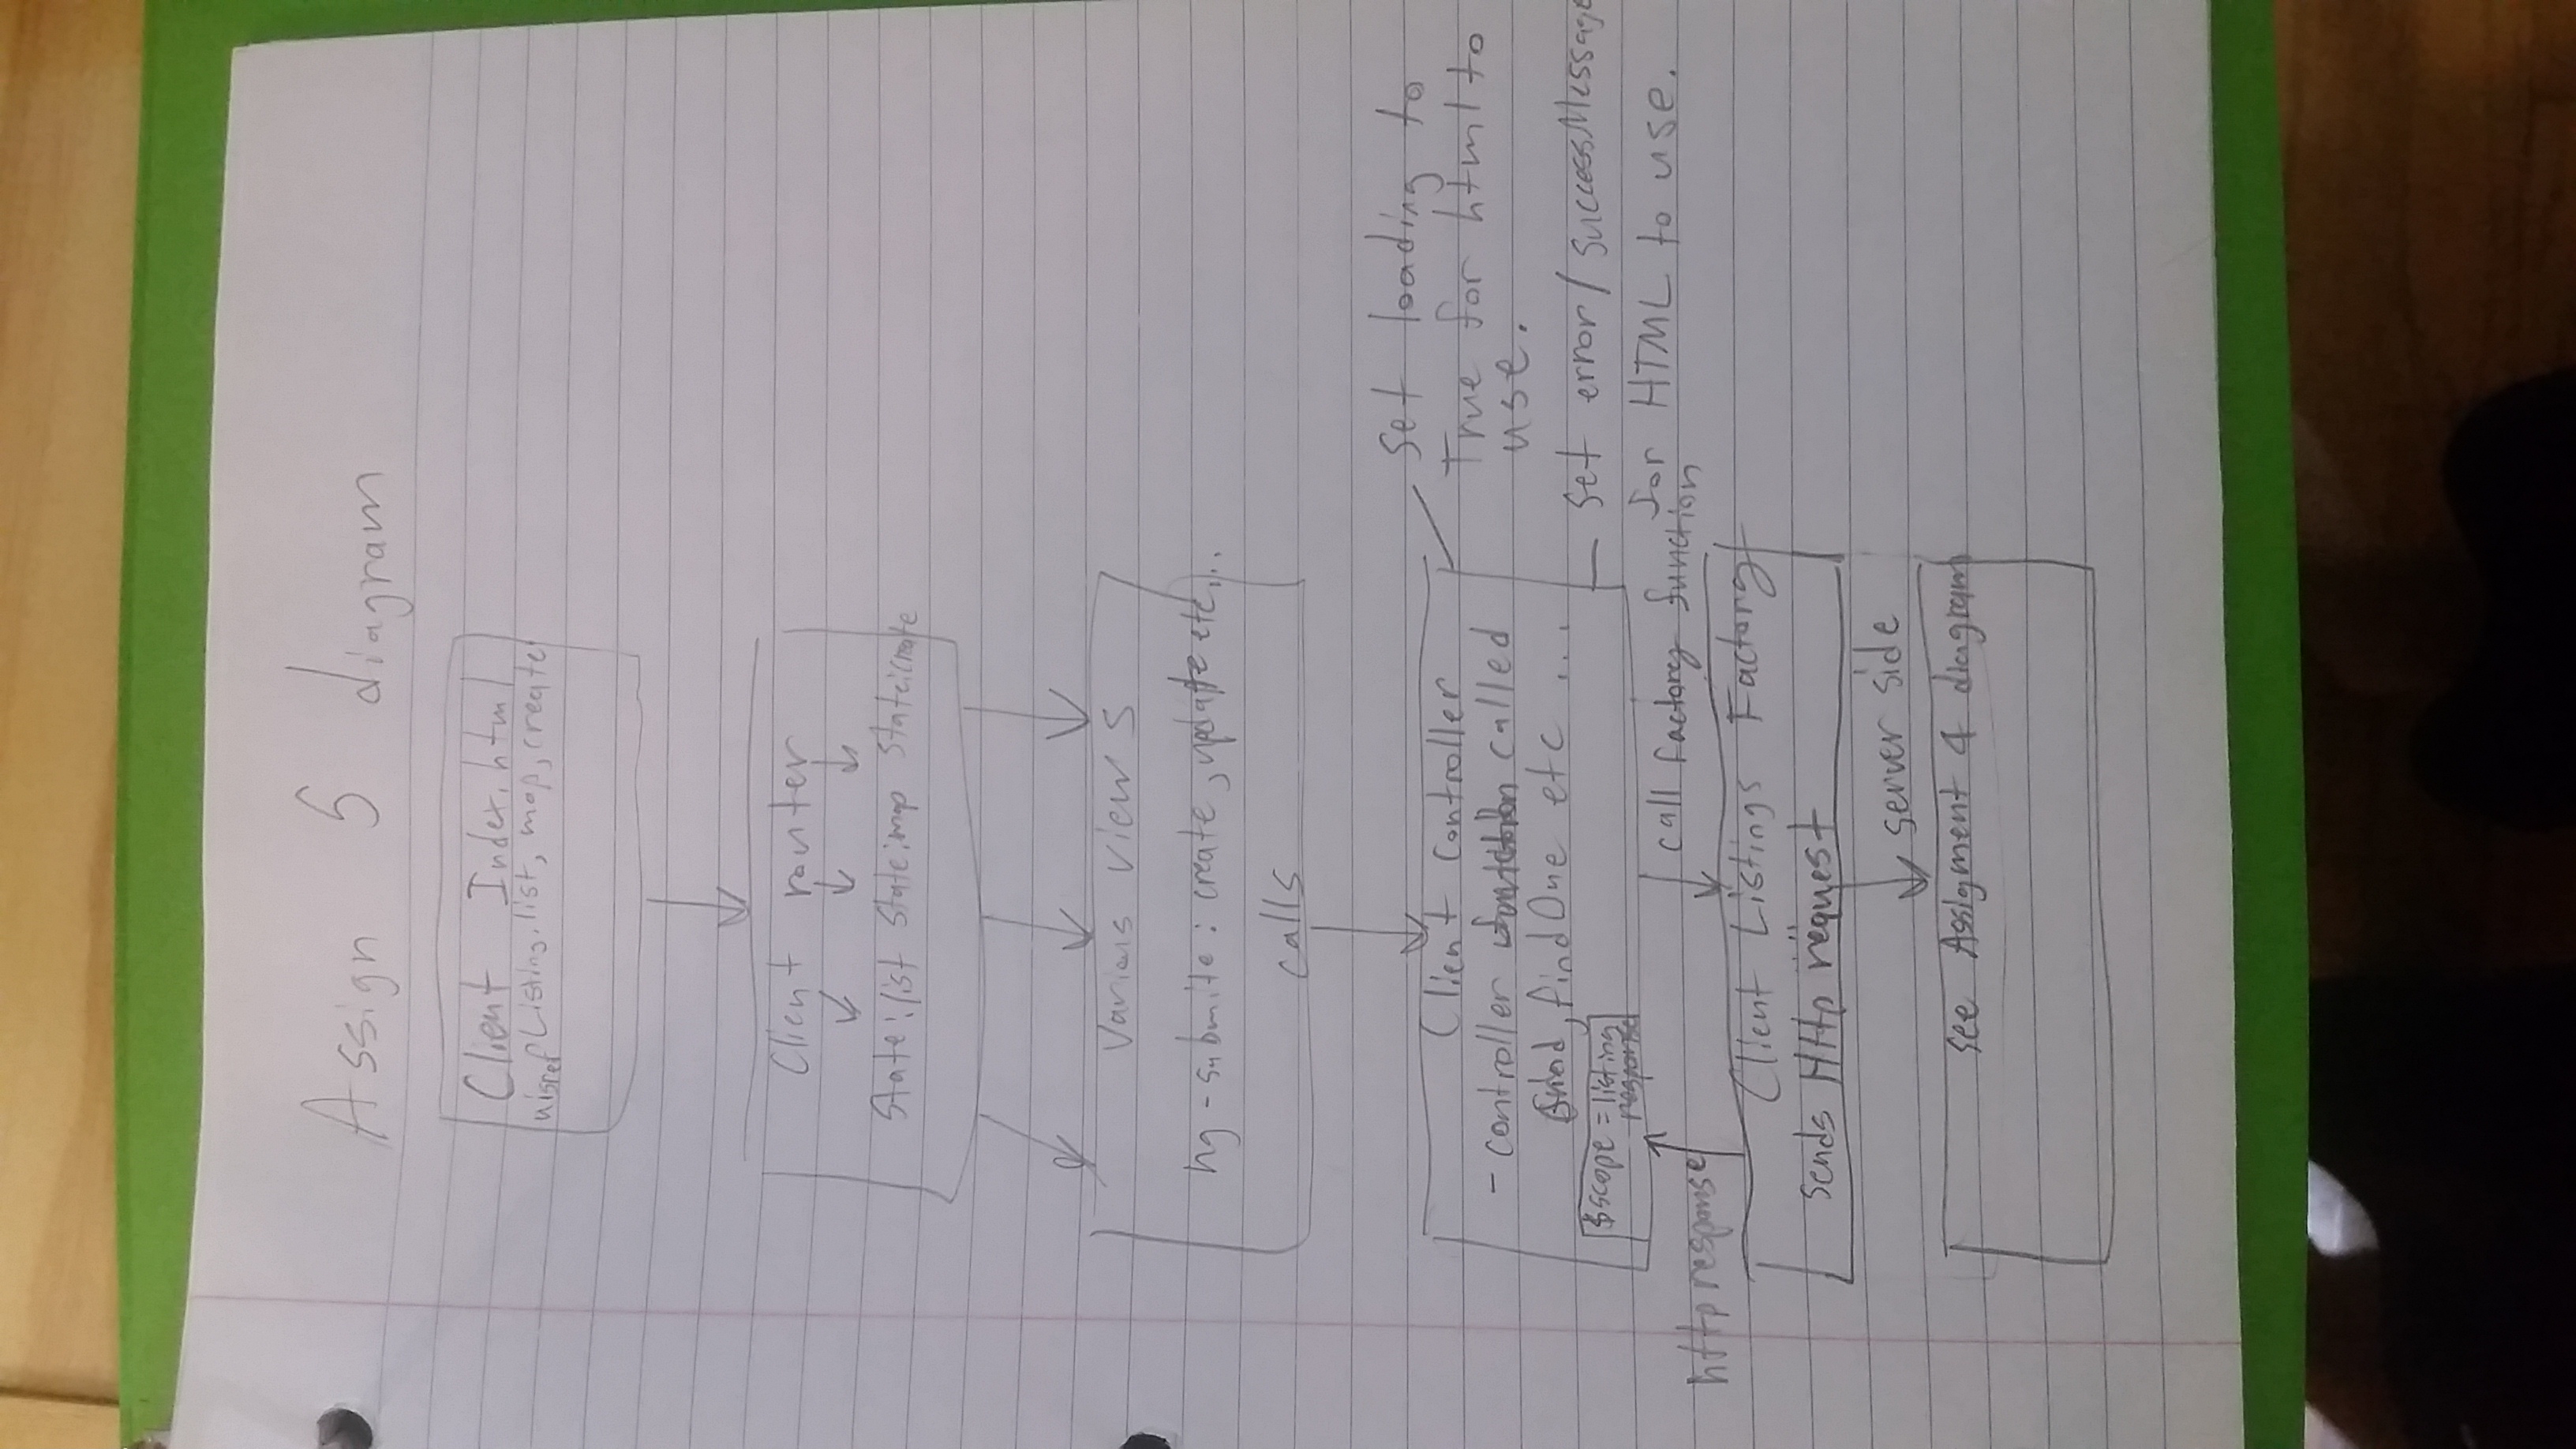 Assign 5 diagram
Client Index.html
uisref Listing.list, map, create
Client router
State:list State:map State:create
Various views
ng-submite: create, update etc...
calls
Client Controller
- controller called
find, findOne etc ...
$scope = listing
response
Set loading to
True for html to
use.
Set error/successMessage
for HTML to use.
http response
call factory function
Client Listings Factory
Sends HTTp request
server side
see Assigment 4 diagram